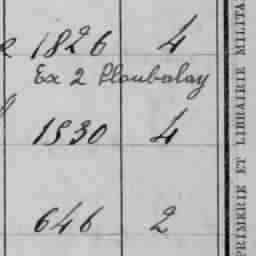 1826 4
Ex 2 Ploubalay
1530 4
646 2
PRIMERIE ET LIBRAIRIE MILITA